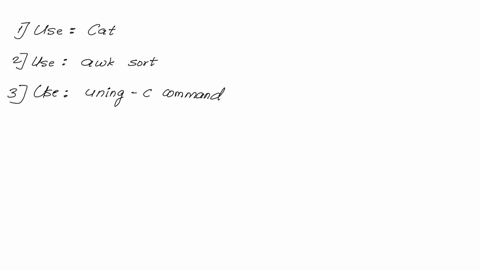 1] Use = Cat
2] Use : awk sort
3] Use : uning - c command